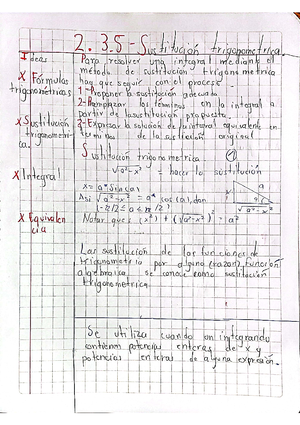 2.3.5 - Sustitución trigonometrica.
Ideas
X Fórmulas
trigonométricas
X Sustitución
trigonometri-
ca.
X Integral
X Equivalen
cia
Para resolver una integral mediante el
método de sustitución trigonometrica
hay que seguir con el proceso
1-Proponer la sustitución adecuada
2-Remplazar los términos en la integral a
partir de la sustitución propuesta.
3-Expresar la solución de la integral equivalente en
terminos de la sustitución original
Sustitución trigonometrica ①
√a²-x² = hacer la sustitución
x=a*sin(a)
Asi √a²-x² = a* cos(a), dan
(-π/2 ≤ a ≤ π/2)
Notar que: (x²) + (√a²-x²)² = a²
a
x
√a²-x²
Las sustitución de las funciones de
trigonometria por alguna (razon) función
algebraica, se conoce como sustitución
trigonometrica.
Se utiliza cuando un integrando
contiene potencias enteras de x y
potencias enteras de alguna expresión.